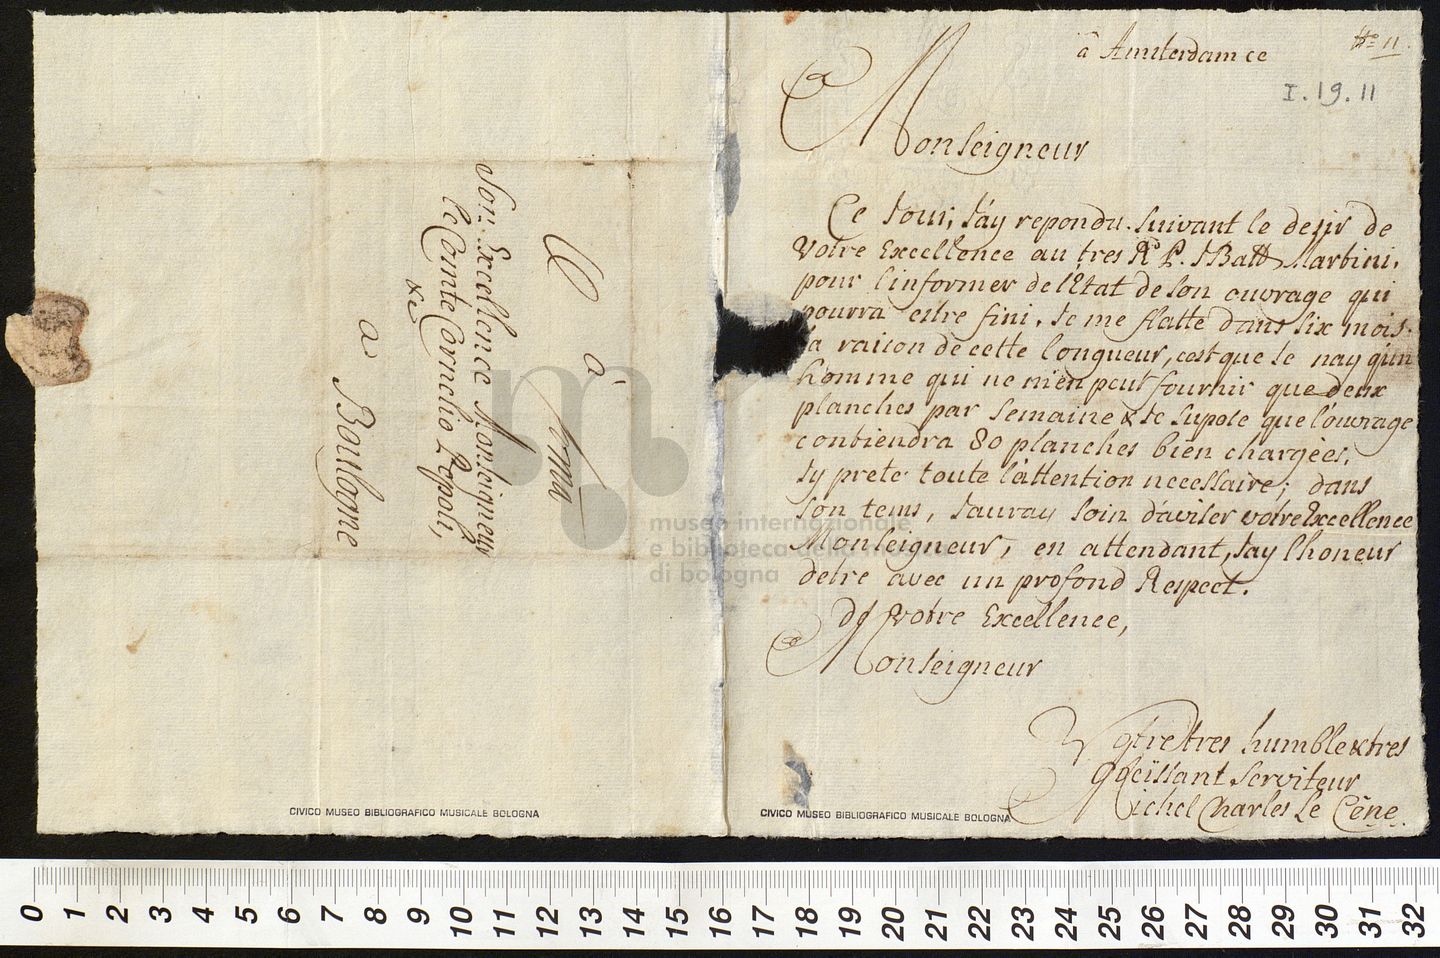 à Amsterdam ce
No 11.
I.19.11
Monseigneur
Ce Jour, J'ay repondu suivant le desir de
Votre Excellence au tres Rd P. JBatt Martini,
pour l'informer de l'Etat de son ouvrage qui
pourra estre fini, Je me flatte dans six mois.
la raison de cette longueur, cest que Je nay qu'un
homme qui ne m'en peut fournir que deux
planches par semaine & Je supose que l'ouvrage
contiendra 80 planches bien chargées,
J'y prete toute l'attention necessaire; dans
son tems, J'auray soin d'aviser votre Excellence
Monseigneur, en attendant, J'ay l'honeur
d'etre avec un profond Respect.
De votre Excellence,
Monseigneur
Votre tres humble & tres
obeïssant serviteur
Michel Charles Le Cène.
A
à
Son Excellence Monseigneur
le Comte Cornelio Pepoli,
&c
a
Boulogne
museo internazionale
e biblioteca della musica
di bologna
CIVICO MUSEO BIBLIOGRAFICO MUSICALE BOLOGNA
CIVICO MUSEO BIBLIOGRAFICO MUSICALE BOLOGNA
0 1 2 3 4 5 6 7 8 9 10 11 12 13 14 15 16 17 18 19 20 21 22 23 24 25 26 27 28 29 30 31 32